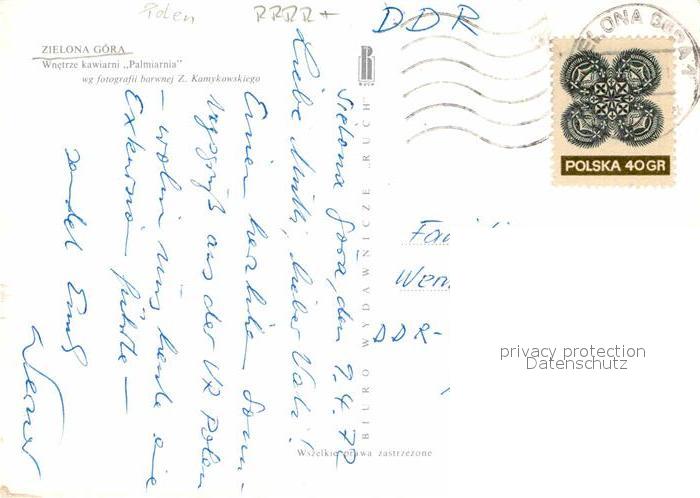 Polen
RRRR+
DDR
ZIELONA GÓRA
Wnętrze kawiarni „Palmiarnia”
wg fotografii barwnej Z. Kamykowskiego
ZIELONA GÓRA 1
POLSKA 40 GR
RUCH
BIURO WYDAWNICZE „RUCH”
Wszelkie prawa zastrzeżone
Zielona Góra, den 9.4.72
Liebe Mutti, lieber Vati!
Einen herzlichen Sonn-
aus der VR Polen
– wohin uns heute eine
Exkursion führte –
sendet Euch
Werner
DDR-
privacy protection
Datenschutz